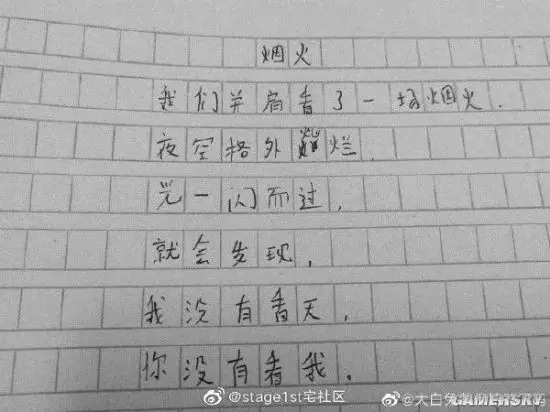 烟火
我们并肩看了一场烟火.
夜空格外璀烂.
光一闪而过,
就会发现,
我没有看天,
你没有看我.
@stage1st宅社区
@大白兔
GAMERSKY